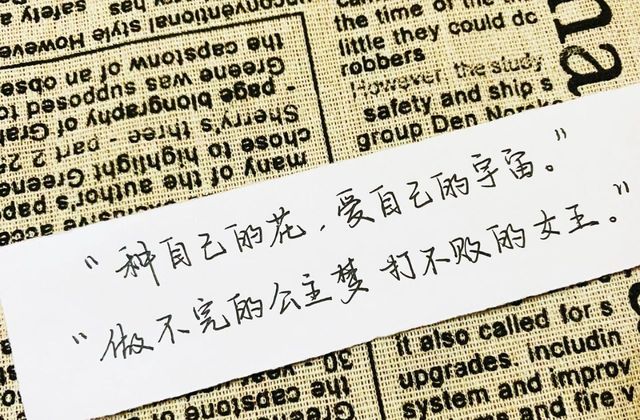 "种自己的花，爱自己的宇宙。"
"做不完的公主梦 打不败的女王。"
unconventional
style However
the capstone
w of an obse
Greene was supposed to
- page biography of Grah
Sherry's three - part - 2 25
chose to highlight
many of the author's pape
the time of the
little they could do
robbers
However, the study
safety and ship s
group Den Norske
na
it also called for s
upgrades, includin
system and improv
es and fire v
30 - year
the capstone
Greene